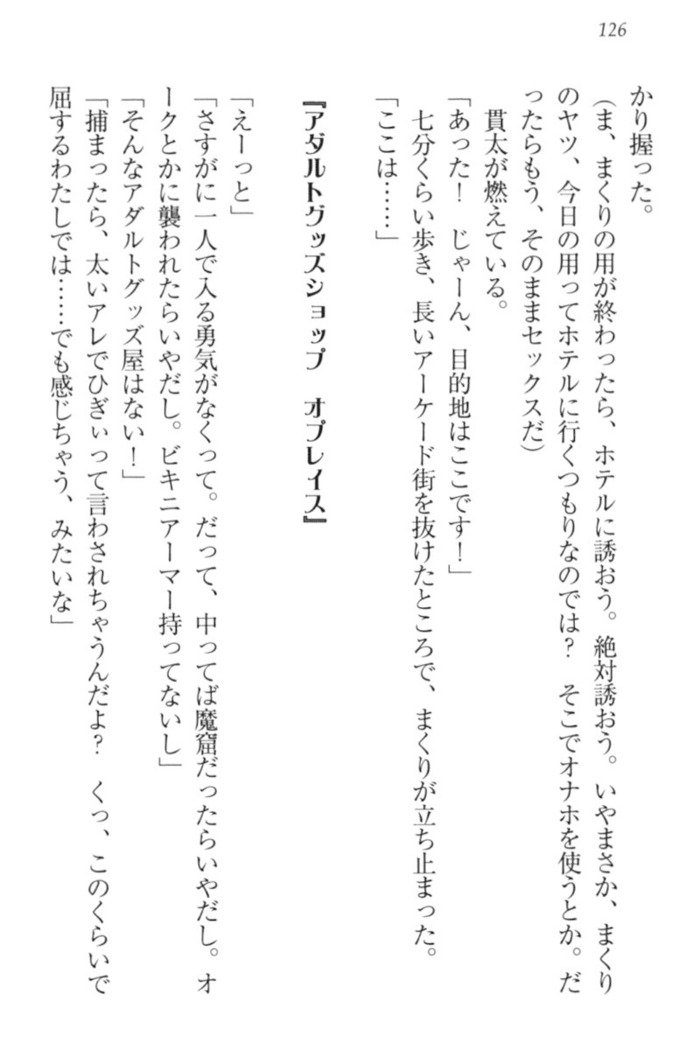 126
かり握った。
(ま、まくりの用が終わったら、ホテルに誘おう。絶対誘おう。いやまさか、まくり
のヤツ、今日の用ってホテルに行くつもりなのでは?　そこでオナホを使うとか。だ
ったらもう、そのままセックスだ)
　貫太が燃えている。
「あった!　じゃーん、目的地はここです!」
　七分くらい歩き、長いアーケード街を抜けたところで、まくりが立ち止まった。
「ここは……」
『アダルトグッズショップ　オプレイス』
「えーっと」
「さすがに一人で入る勇気がなくって。だって、中ってば魔窟だったらいやだし。オ
ークとかに襲われたらいやだし。ビキニアーマー持ってないし」
「そんなアダルトグッズ屋はない!」
「捕まったら、太いアレでひぎぃって言わされちゃうんだよ?　くっ、このくらいで
屈するわたしでは……でも感じちゃう、みたいな」